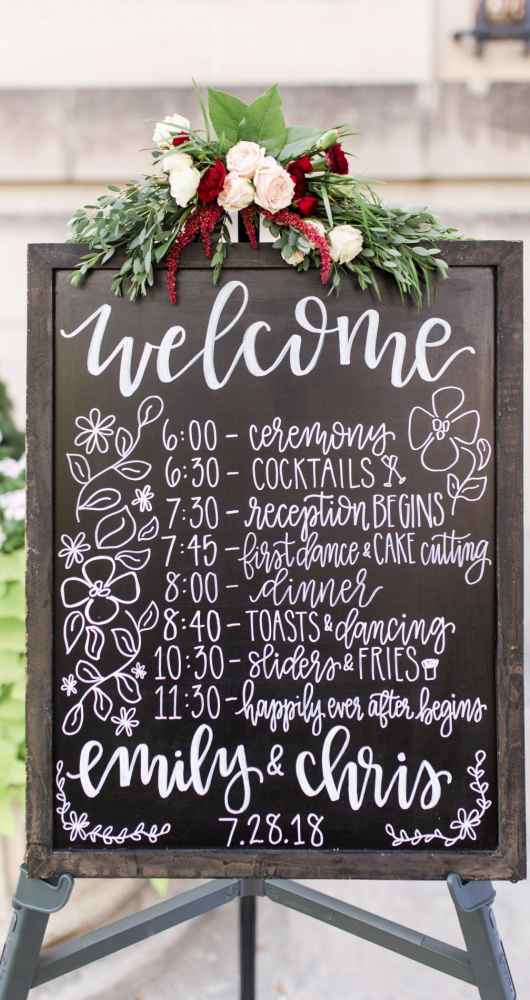 welcome
6:00 - ceremony
6:30 - COCKTAILS
7:30 - reception BEGINS
7:45 - first dance & CAKE cutting
8:00 - dinner
8:40 - TOASTS & dancing
10:30 - sliders & FRIES
11:30 - happily ever after begins
emily & chris
7.28.18